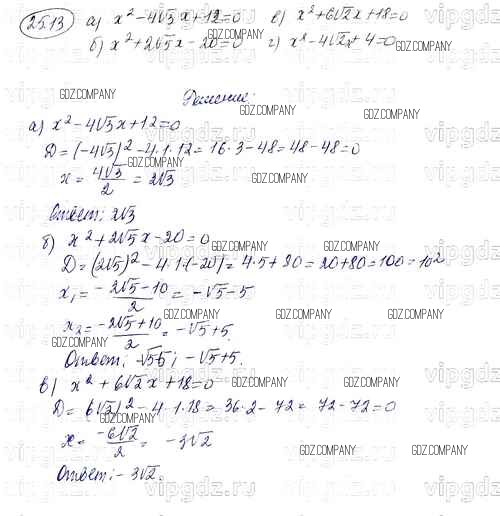 25.13 а) x² - 4√3 x + 12 = 0 в) x² + 6√2 x + 18 = 0
б) x² + 2√5 x - 20 = 0 г) x² - 4√2 x + 4 = 0
Решение:
а) x² - 4√3 x + 12 = 0
D = (-4√3)² - 4·1·12 = 16·3 - 48 = 48 - 48 = 0
x = 4√3/2 = 2√3
Ответ: 2√3
б) x² + 2√5 x - 20 = 0
D = (2√5)² - 4·1·(-20) = 4·5 + 80 = 20 + 80 = 100 = 10²
x₁ = (-2√5 - 10)/2 = -√5 - 5
x₂ = (-2√5 + 10)/2 = -√5 + 5.
Ответ: -√5-5; -√5+5.
в) x² + 6√2 x + 18 = 0
D = (6√2)² - 4·1·18 = 36·2 - 72 = 72 - 72 = 0
x = -6√2/2 = -3√2
Ответ: -3√2.